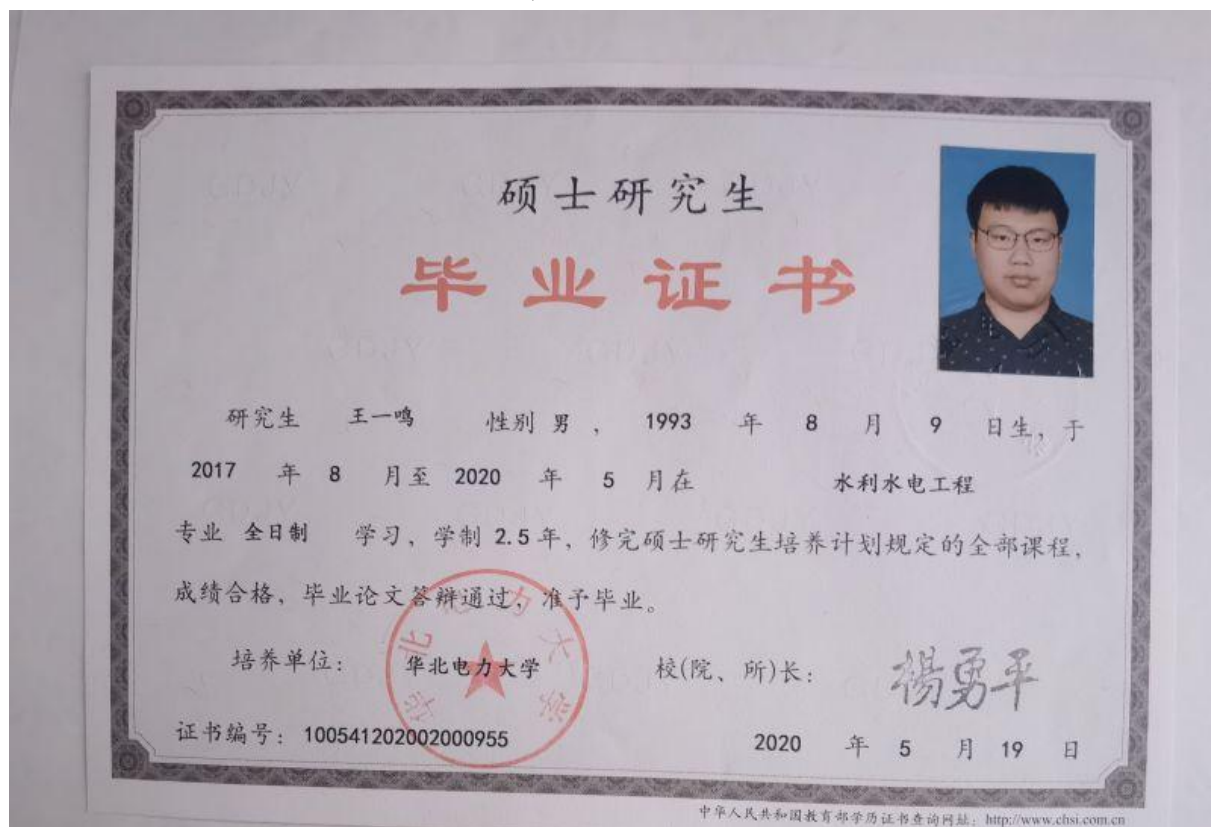 硕士研究生
毕业证书
研究生 王一鸣 性别 男 , 1993 年 8 月 9 日生, 于
2017 年 8 月至 2020 年 5 月在 水利水电工程
专业 全日制 学习、学制 2.5 年、修完硕士研究生培养计划规定的全部课程,
成绩合格、毕业论文答辩通过, 准予毕业。
培养单位: 华北电力大学 校(院、所)长: 杨勇平
华北电力大学
证书编号: 100541202002000955 2020 年 5 月 19 日
中华人民共和国教育部学历证书查询网址: http://www.chsi.com.cn